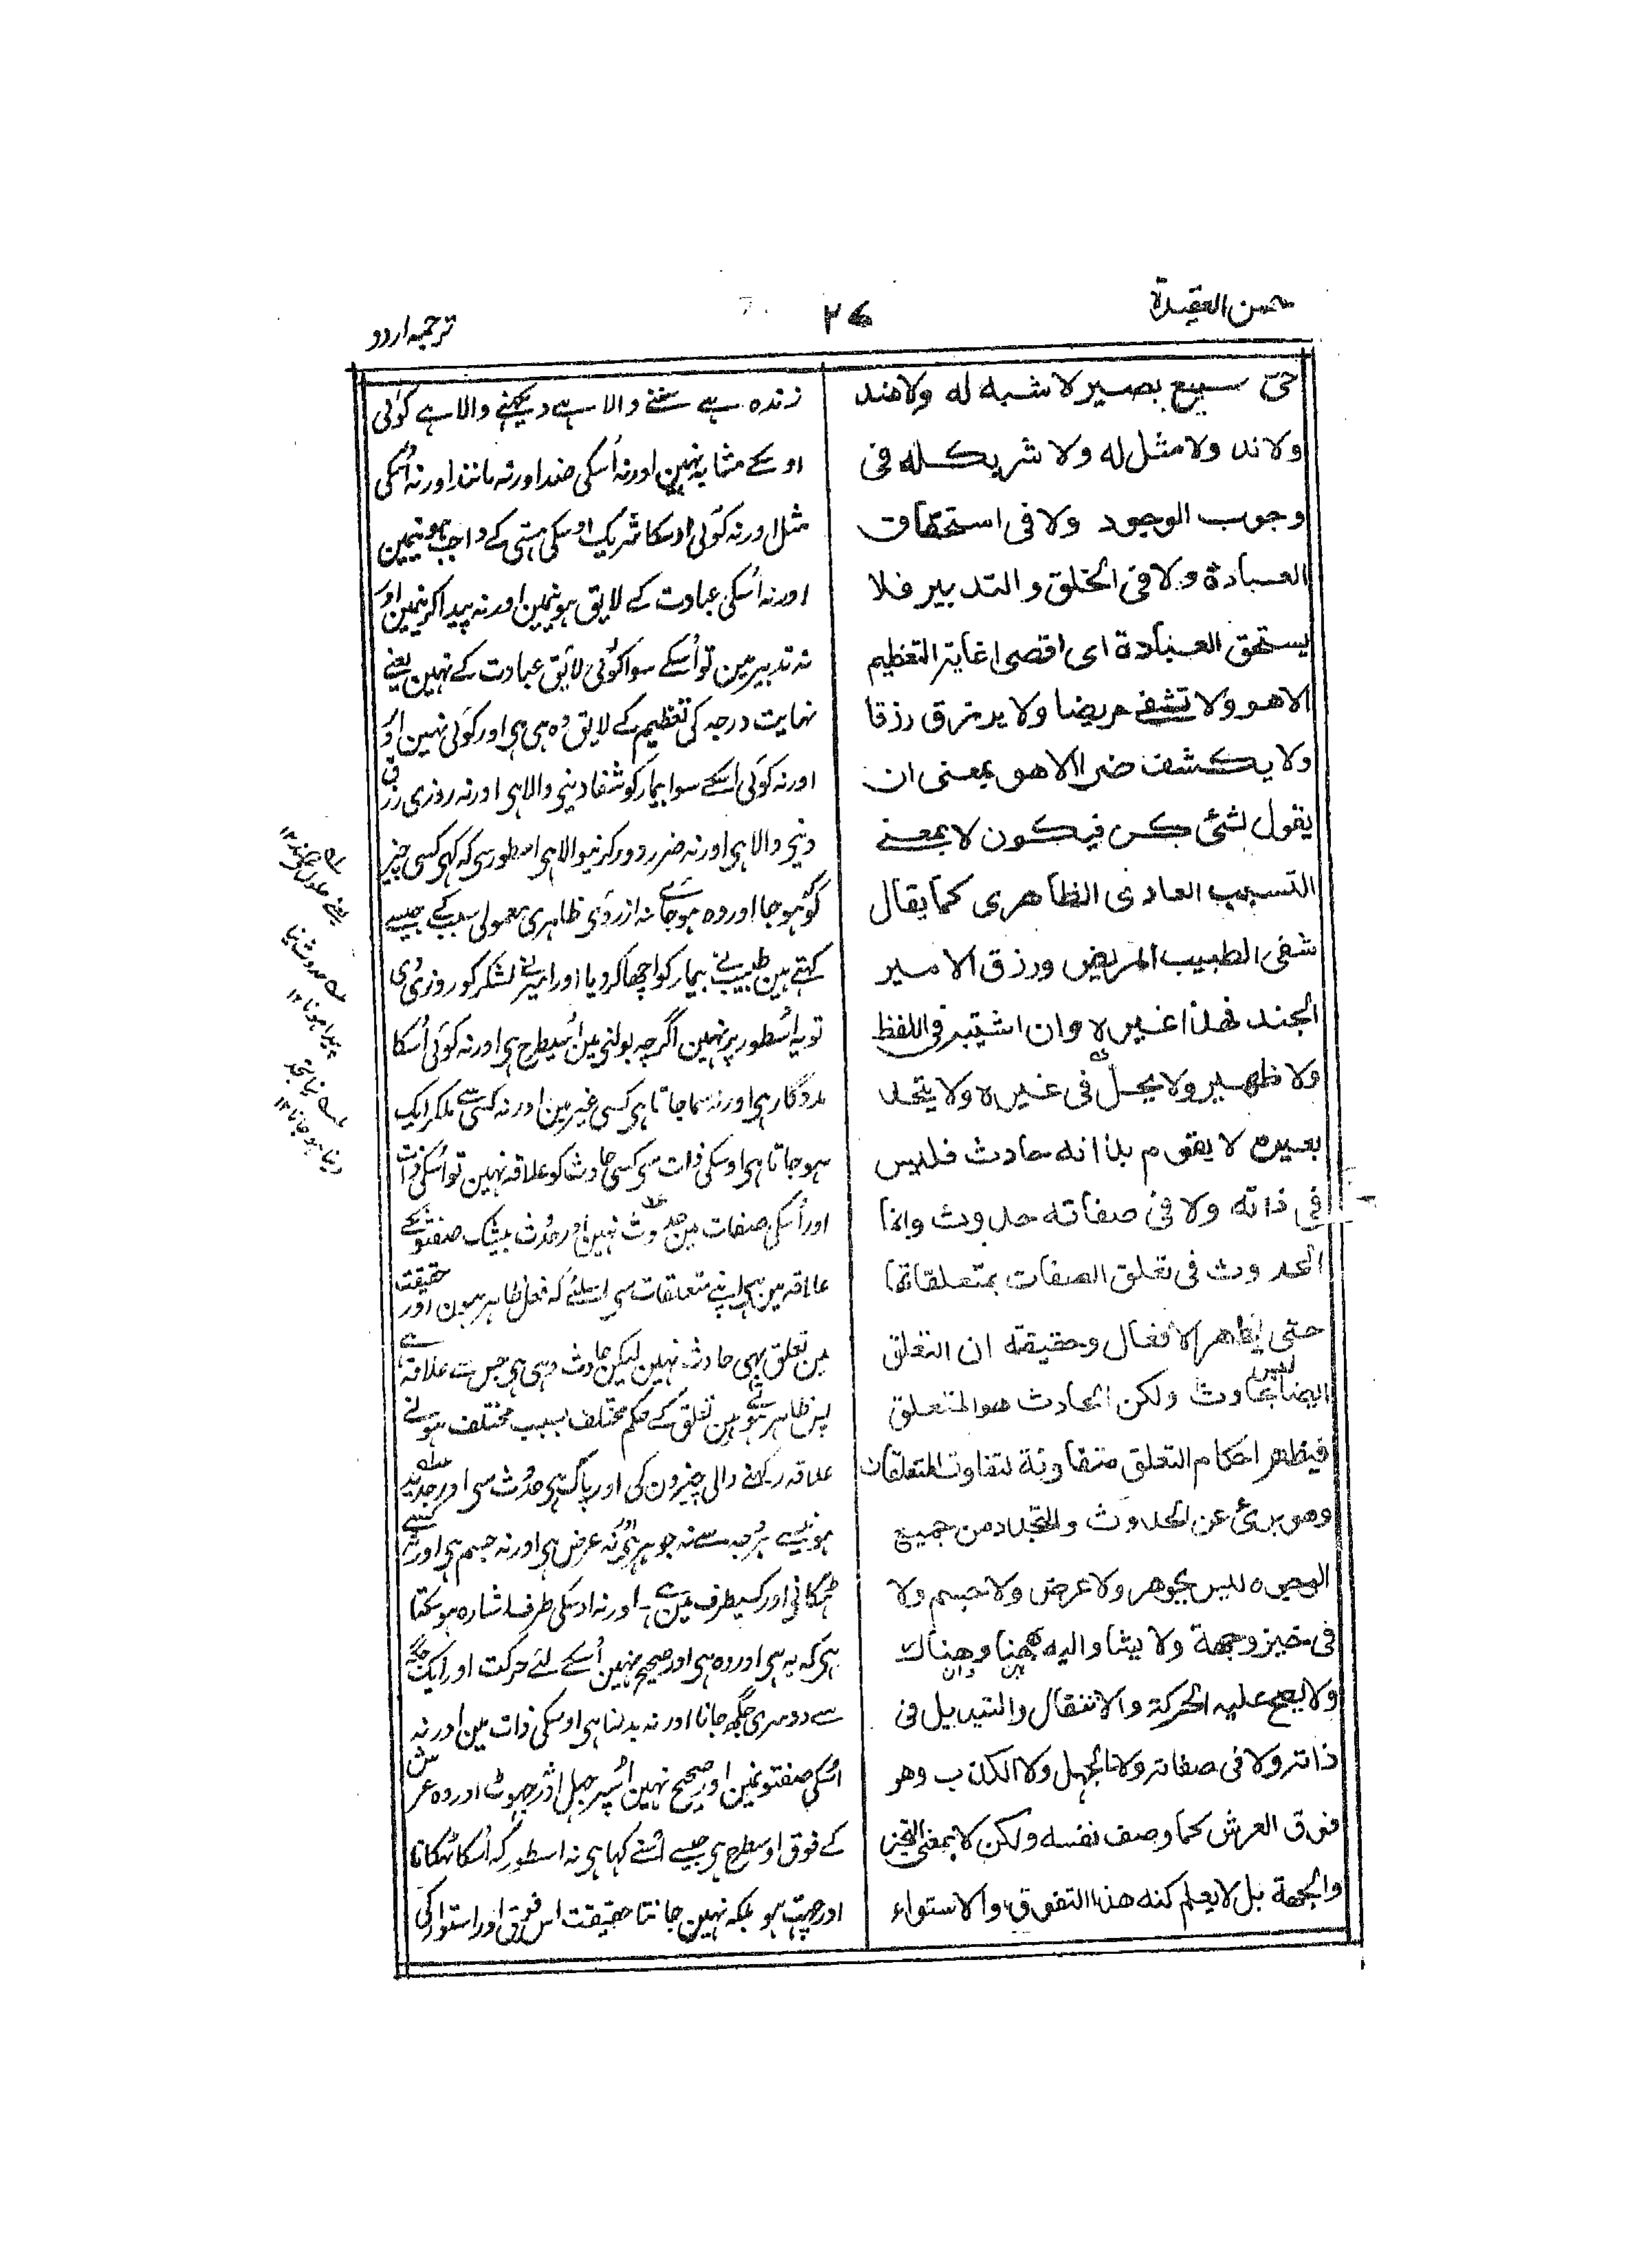 حسن العقیدۃ
۲۷
ترجمہ اردو
حیّ سمیع بصیر لا شبه له ولا ضد
ولا ند ولا مثل له ولا شریک له فی
وجوب الوجود ولا فی استحقاق
العبادة ولا فی الخلق والتدبیر فلا
یستحق العبادة ای اقصی غایة التعظیم
الا هو ولا تشفے مریضا ولا یرزق رزقا
ولا یکشف ضرا الا هو بمعنی ان
یقول لشئ کن فیکون لا بمعنے
التسبب العادی الظاهری کما یقال
شفی الطبیب المریض ورزق الامیر
الجند فهذا غیره وان اشتبه فی اللفظ
ولا ظهیر ولا یحلّ فی غیره ولا یتحد
بغیره لا یقوم بذاته حادث فلیس
فی ذاته ولا فی صفاته حدوث وانما
الحدوث فی تعلق الصفات بمتعلقاتها
حتی یظهر الافعال وحقیقة ان التعلق
ایضا لیس بحادث ولکن الحادث هو المتعلق
فیظهر احکام التعلق متفاوتة لتفاوت المتعلقات
وهو برئ عن الحدوث والتجدد من جمیع
الوجوه لیس بجوهر ولا عرض ولا جسم ولا
فی حیز وجهة ولا یشار الیه بهنا وهناک
ولا یصح علیه الحرکة والانتقال والتبدیل فی
ذاته ولا فی صفاته ولا الجهل ولا الکذب وهو
فوق العرش کما وصف نفسه ولکن لا بمعنی التحیز
والجهة بل لا یعلم کنه هذا التفوق والاستواء
زندہ ہے سننے والا ہے دیکھنے والا ہے کوئی
اوسکے مشابہ نہین اور نہ اُسکی ضد اور نہ مانند اور نہ اُسکی
مثل اور نہ کوئی اوسکا شریک اوسکی ہستی کے واجب ہونیمین
اور نہ اُسکی عبادت کے لایق ہونیمین اور نہ پیدا کرنیمین اور
نہ تدبیر مین تو اُسکے سوا کوئی لایق عبادت کے نہین یعنے
نہایت درجہ کی تعظیم کے لایق وہ ہی ہی اور کوئی نہین اور
اور نہ کوئی اسکے سوا بیمار کو شفا دینے والا ہی اور نہ روزی رزق
دینے والا ہی اور نہ ضرر دور کرنیوالا ہی اسطور سی کہ کہی کسی چیز
کو ہو جا اور وہ ہو جائے نہ از روی ظاہری معمولی سبب کے جیسے
کہتے ہین طبیب نے بیمار کو اچھا کر دیا اور امیر نے لشکر کو روزی دی
تو یہ اُسطور پر نہین اگرچہ بولنے مین اُسیطرح ہی اور نہ کوئی اُسکا
مددگار ہی اور نہ سما جاتا ہی کسی غیر مین اور نہ کسی سے ملکر ایک
ہو جاتا ہی اوسکی ذات سی کسی حادث کو علاقہ نہین تو اُسکی ذات
اور اُسکی صفات مین حدوث نہین اور حدوث بیشک صفتونکے
علاقہ مین ہی اپنے متعلقات سی اسلئے کہ فعل ظاہر ہون اور حقیقت
مین تعلق بہی حادث نہین لیکن حادث وہی ہی جس سے علاقہ ہے
پس ظاہر ہوتے ہین تعلق کے حکم مختلف بسبب مختلف ہونے
علاقہ رکہنے والی چیزون کی اور پاک ہی حدوث سی اور جدید
ہونیسے ہر وجہ سے نہ جوہر ہی اور نہ عرض ہی اور نہ جسم ہی اور نہ کسے
ٹھکانی اور کسیطرف مین ہے اور نہ اوسکی طرف اشارہ ہو سکتا
ہی کہ یہ ہی اور وہ ہی اور صحیح نہین اُسکے لئے حرکت اور ایک جگہ
سے دوسری جگہ جانا اور نہ بدلنا ہی اوسکی ذات مین اور نہ
اُسکی صفتونمین اور صحیح نہین اُسپر جہل اور جہوٹ اور وہ عرش
کے فوق اوسطرح ہی جیسے اُسنے کہا ہی نہ اسطور کہ اُسکا ٹھکانا
اور جہت ہو بلکہ نہین جانتا حقیقت اس فوق اور استوار کی
یعنے حلول
حدوث نیا
پیدا ہونا ۱۲